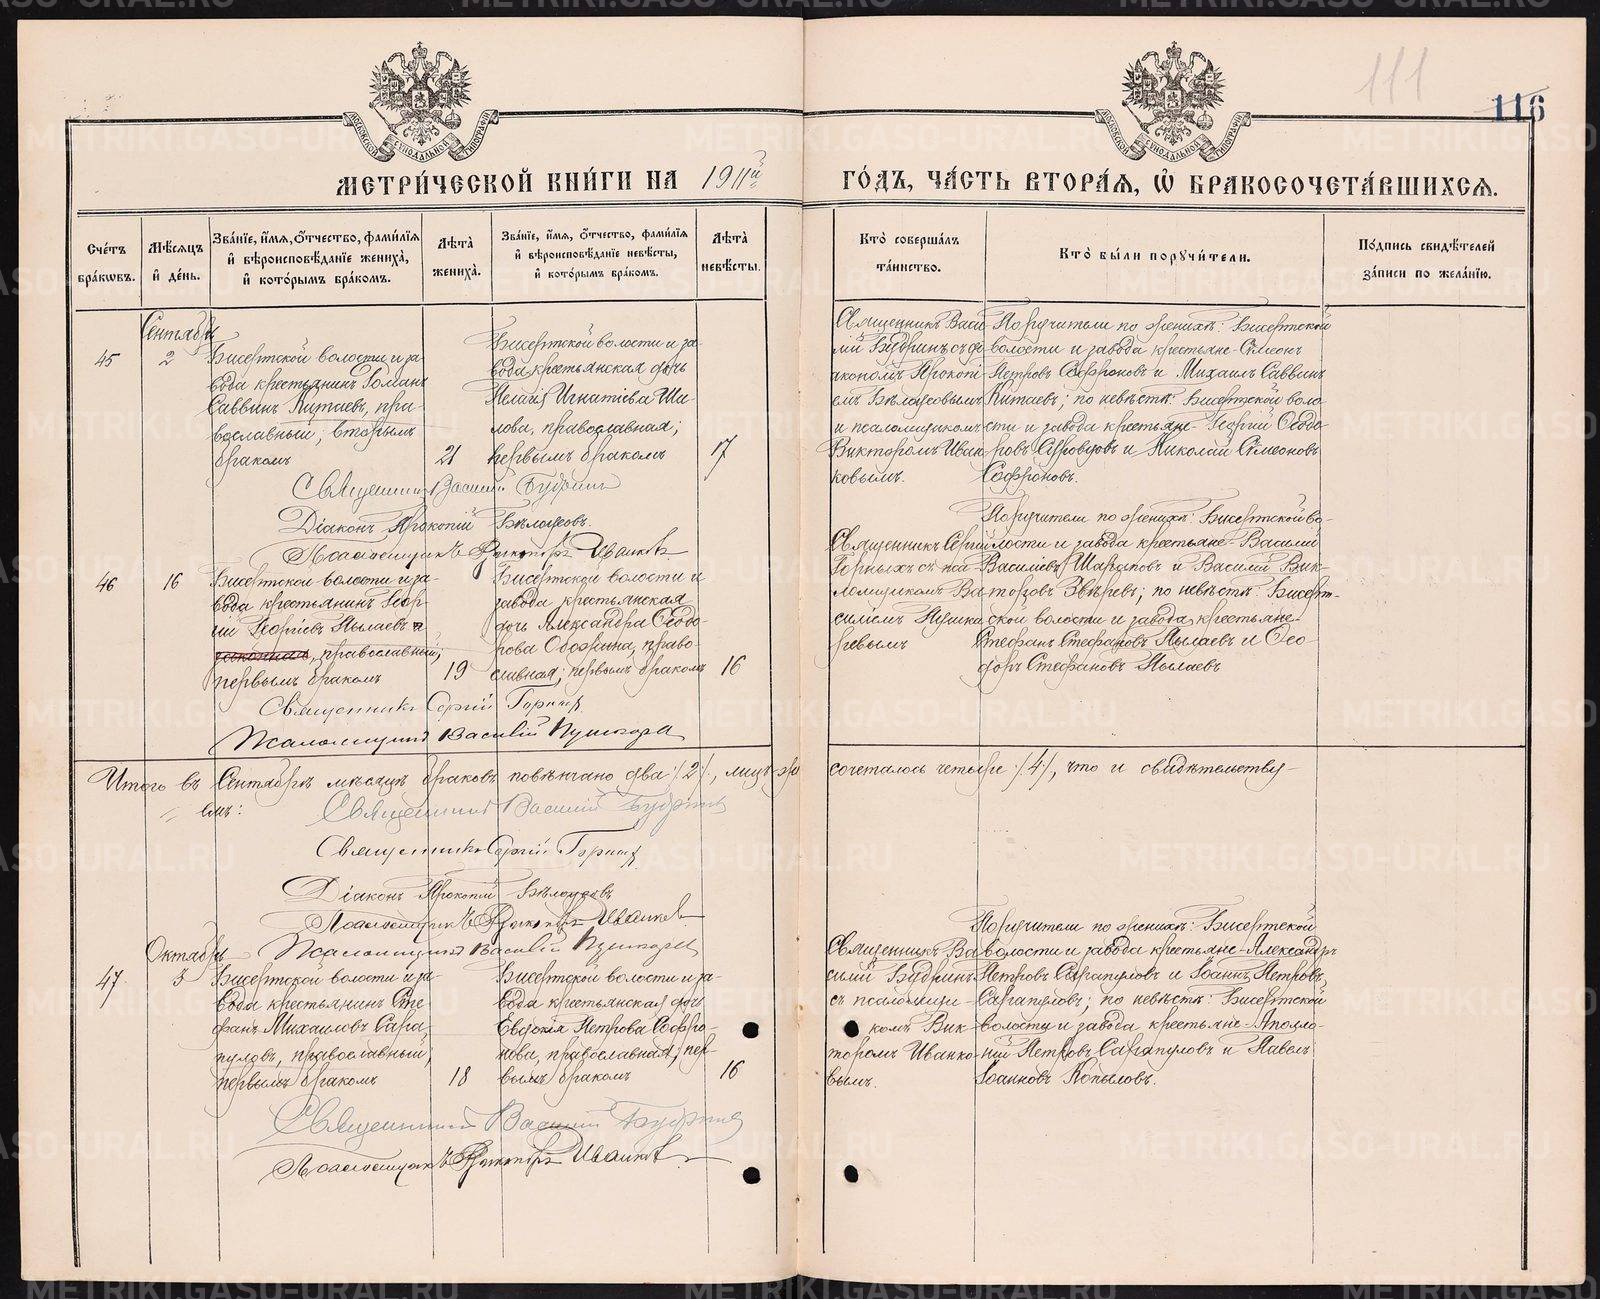 111
116
МОСКОВСКОЙ СѴНОДАЛЬНОЙ ТИПОГРАФІИ
МОСКОВСКОЙ СѴНОДАЛЬНОЙ ТИПОГРАФІИ
МЕТРИ́ЧЕСКОЙ КНИ́ГИ НА 1911й
ГО́ДЪ, ЧА́СТЬ ВТОРА́Я, Ѡ҆ БРАКОСОЧЕТА́ВШИХСЯ.
Сче́тъ бра́кѡвъ.
Мѣ́сяцъ и҆ де́нь.
Зва́нїе, и҆́мя, ѻ҆́тчество, фами́лїя и҆ вѣроисповѣ́данїе жениха̀, и҆ кото́рымъ бра́комъ.
Лѣ́та жениха̀.
Зва́нїе, и҆́мя, ѻ҆́тчество, фами́лїя и҆ вѣроисповѣ́данїе невѣ́сты, и҆ кото́рымъ бра́комъ.
Лѣ́та невѣ́сты.
Кто̀ соверша́лъ та́инство.
Кто̀ бы́ли порꙋчи́тели.
По́дпись свидѣ́телей за́писи по жела́нїю.
Сентябрь
45
2
Бисертской волости и за-
вода крестьянинъ Романъ
Саввинъ Китаевъ, пра-
вославный; вторымъ
бракомъ
21
Бисертской волости и за-
вода крестьянская дочь
Пелагія Игнатіева Ши-
лова, православная;
первымъ бракомъ
17
Священникъ Васи
лій Будринъ съ ді
акономъ Прокопі
емъ Бѣлоусовымъ
и псаломщикомъ
Викторомъ Иван
ковымъ.
Поручители по женихѣ: Бисертской
волости и завода крестьяне Симеонъ
Петровъ Софроновъ и Михаилъ Саввинъ
Китаевъ; по невѣстѣ: Бисертской воло
сти и завода крестьяне Георгій Ѳеодо-
ровъ и Николай Симеоновъ
Софроновъ.
Священникъ Василій Будринъ
Діаконъ Прокопій Бѣлоусовъ.
Псаломщикъ Викторъ Иванковъ
46
16
Бисертской волости и за-
вода крестьянинъ Геор-
гій Георгіевъ Пылаевъ
православный;
первымъ бракомъ
19
Бисертской волости и
завода крестьянская
дочь Александра Ѳеодо-
рова православная; первымъ бракомъ
16
Священникъ Сергій
Горныхъ съ пса
ломщикомъ Ва
силіемъ Пушка
ревымъ
Поручители по женихѣ: Бисертской во-
лости и завода крестьяне Василій
Василіевъ и Василій Вик-
торовъ Звѣревъ; по невѣстѣ: Бисерт-
ской волости и завода крестьяне
Стефанъ Стефановъ Пылаевъ и Ѳео
доръ Стефановъ Пылаевъ
Священникъ Сергій Горныхъ
Псаломщикъ Василій Пушкаре
Итого въ Сентябрѣ мѣсяцѣ браковъ повѣнчано два /2/, лицъ
сочеталось четыре /4/, что и свидѣтельству-
емъ:
Священникъ Василій Будринъ
Священникъ Сергій Горныхъ
Діаконъ Прокопій Бѣлоусовъ
Псаломщикъ Викторъ Иванковъ
Псаломщикъ Василій Пушкаре
Октябрь
47
Бисертской волости и за-
вода крестьянинъ Сте
фанъ Михаиловъ Сара
пуловъ, православный;
первымъ бракомъ
18
Бисертской волости и за-
вода крестьянская дочь
Евдокія Петрова Софро-
нова, православная; пер-
вымъ бракомъ
16
Священникъ Ва
силій Будринъ
съ псаломщи
комъ Вик
торомъ Иванко
вымъ.
Поручители по женихѣ: Бисертской
волости и завода крестьяне Александръ
Петровъ Сарапуловъ и Іоаннъ Петровъ
Сарапуловъ; по невѣстѣ: Бисертской
волости и завода крестьяне Аполло-
ній Петровъ Сарапуловъ и Павелъ
Іоанновъ Копыловъ.
Священникъ Василій Будринъ
Псаломщикъ Викторъ Иванковъ
METRIKI.GASO-URAL.RU